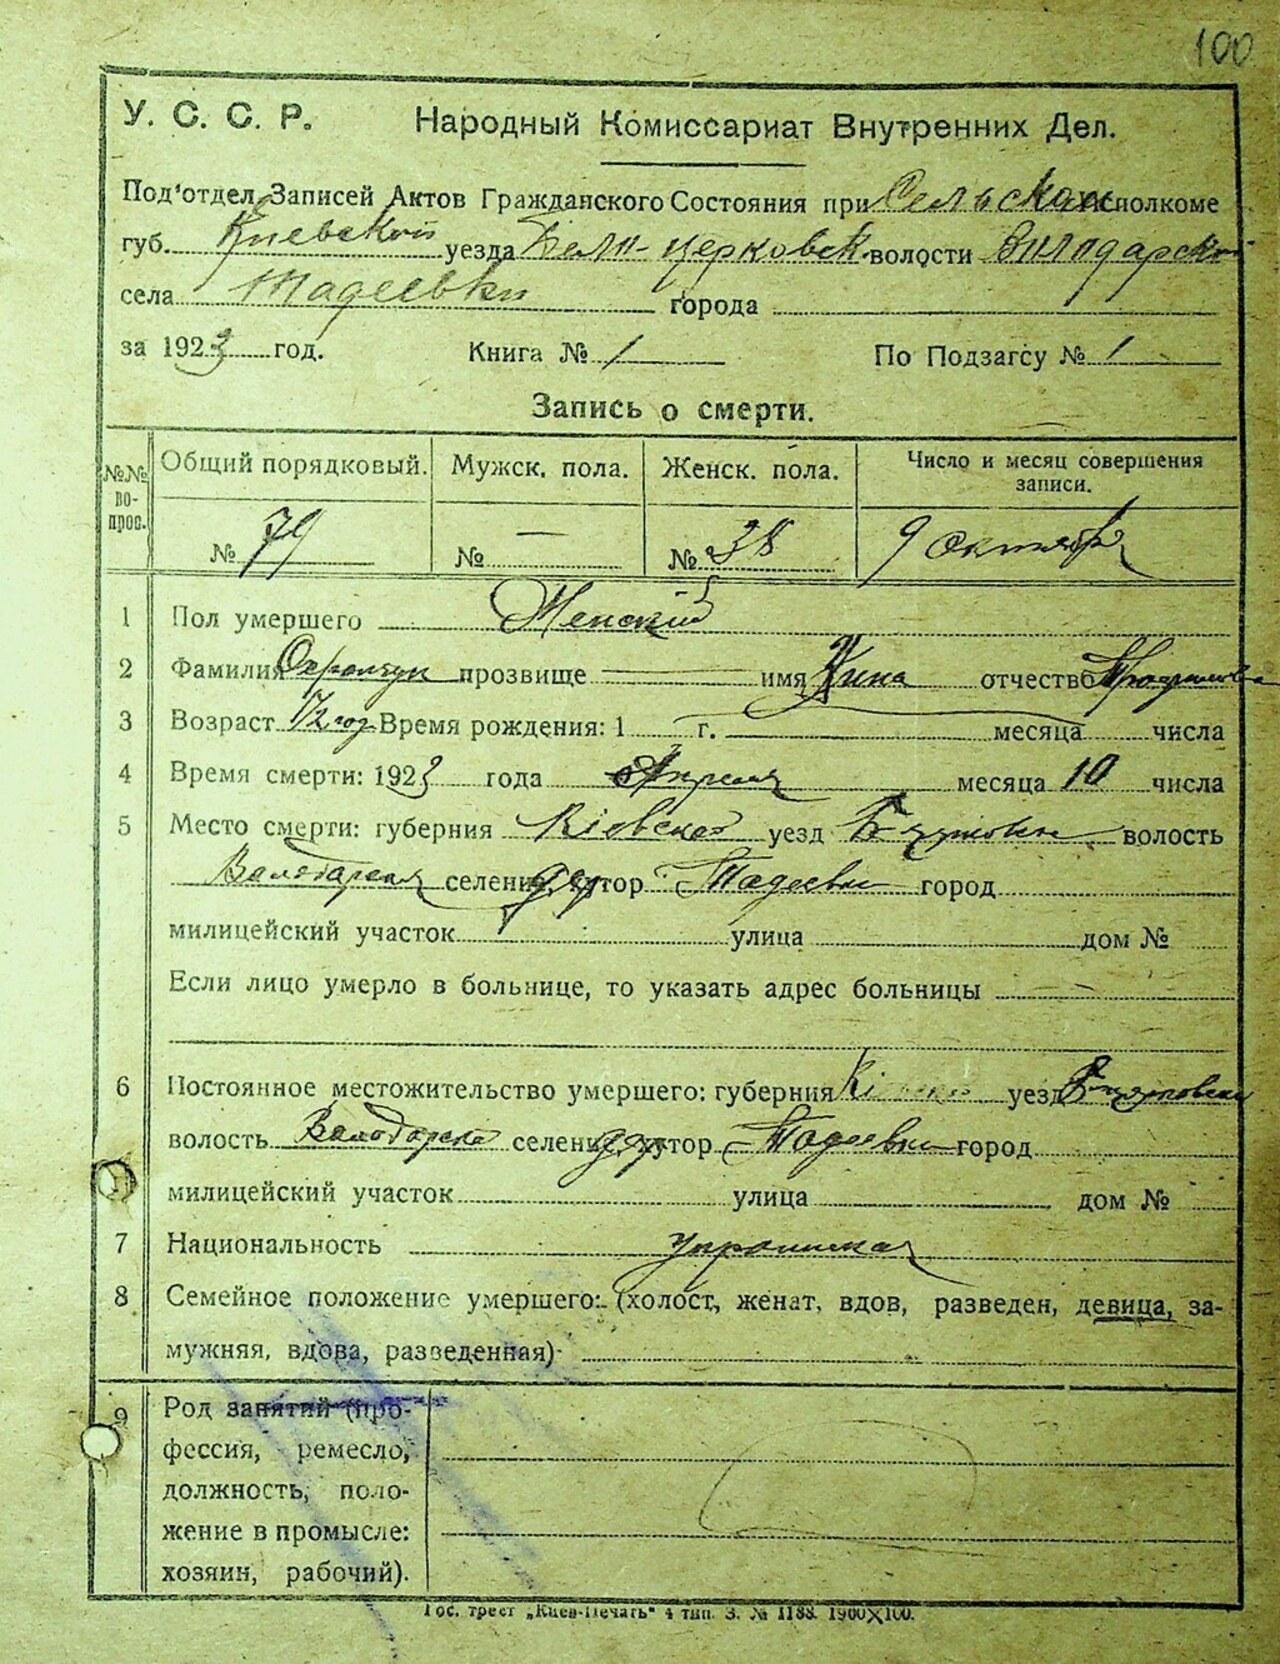 100
У. С. С. Р. Народный Комиссариат Внутренних Дел.
Под'отдел Записей Актов Гражданского Состояния при Сельском исполкоме
губ. Киевской уезда Бело-церковск. волости Володарской
села Тадеевки города
за 1923 год. Книга № 1 По Подзагсу № 1
Запись о смерти.
№№ во-прос. Общий порядковый. Мужск. пола. Женск. пола. Число и месяц совершения записи.
№ 79 № — № 38 9 Октября
1 Пол умершего Женский
2 Фамилия прозвище имя отчество
3 Возраст 1/2 год Время рождения: 1 г. месяца числа
4 Время смерти: 1923 года Апреля месяца 10 числа
5 Место смерти: губерния Кіевская уезд волость
Володарская селение, хутор Тадеевка город
милицейский участок улица дом №
Если лицо умерло в больнице, то указать адрес больницы
6 Постоянное местожительство умершего: губерния уезд
волость Володарска селение, хутор Тадеевка город
милицейский участок улица дом №
7 Национальность
8 Семейное положение умершего: (холост, женат, вдов, разведен, девица, за-
мужняя, вдова, разведенная)
9 Род занятий (про-
фессия, ремесло,
должность, поло-
жение в промысле:
хозяин, рабочий).
Гос. трест „Киев-Печать" 4 тип. З. № 1188. 1900X100.